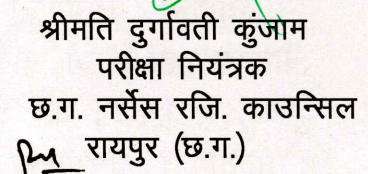 श्रीमति दुर्गावती कुंजाम
परीक्षा नियंत्रक
छ.ग. नर्सेस रजि. काउन्सिल
रायपुर (छ.ग.)